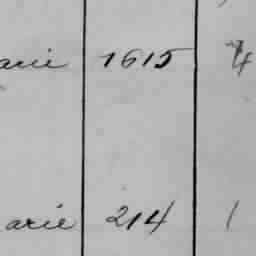 arie 1615 4
arie 214 1